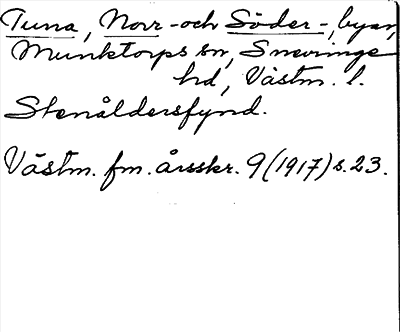 Tuna, Norr- och Söder-, byar,
Munktorps sn, Snevringe
hd, Västm. l.
Stenåldersfynd.
Västm. fm. årsskr. 9 (1917) s. 23.